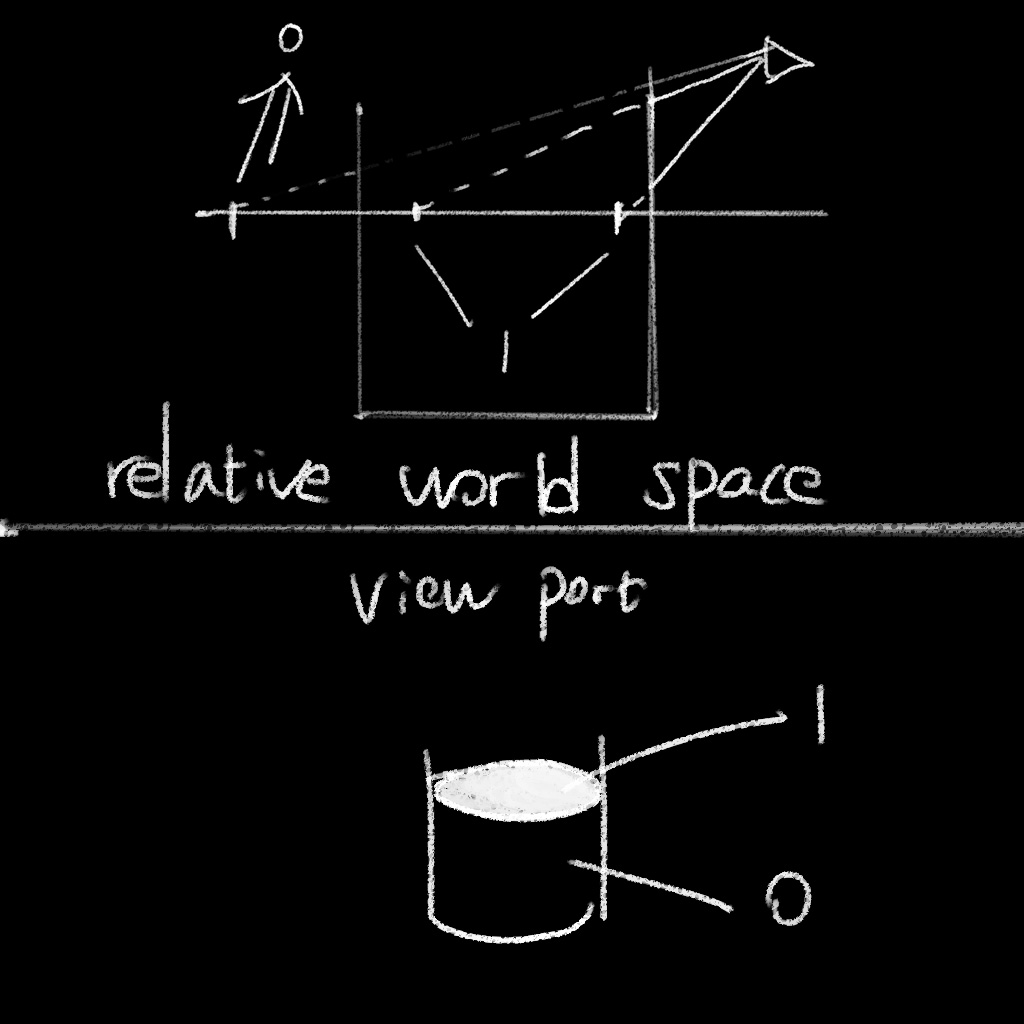 0
1
relative world space
view port
1
0